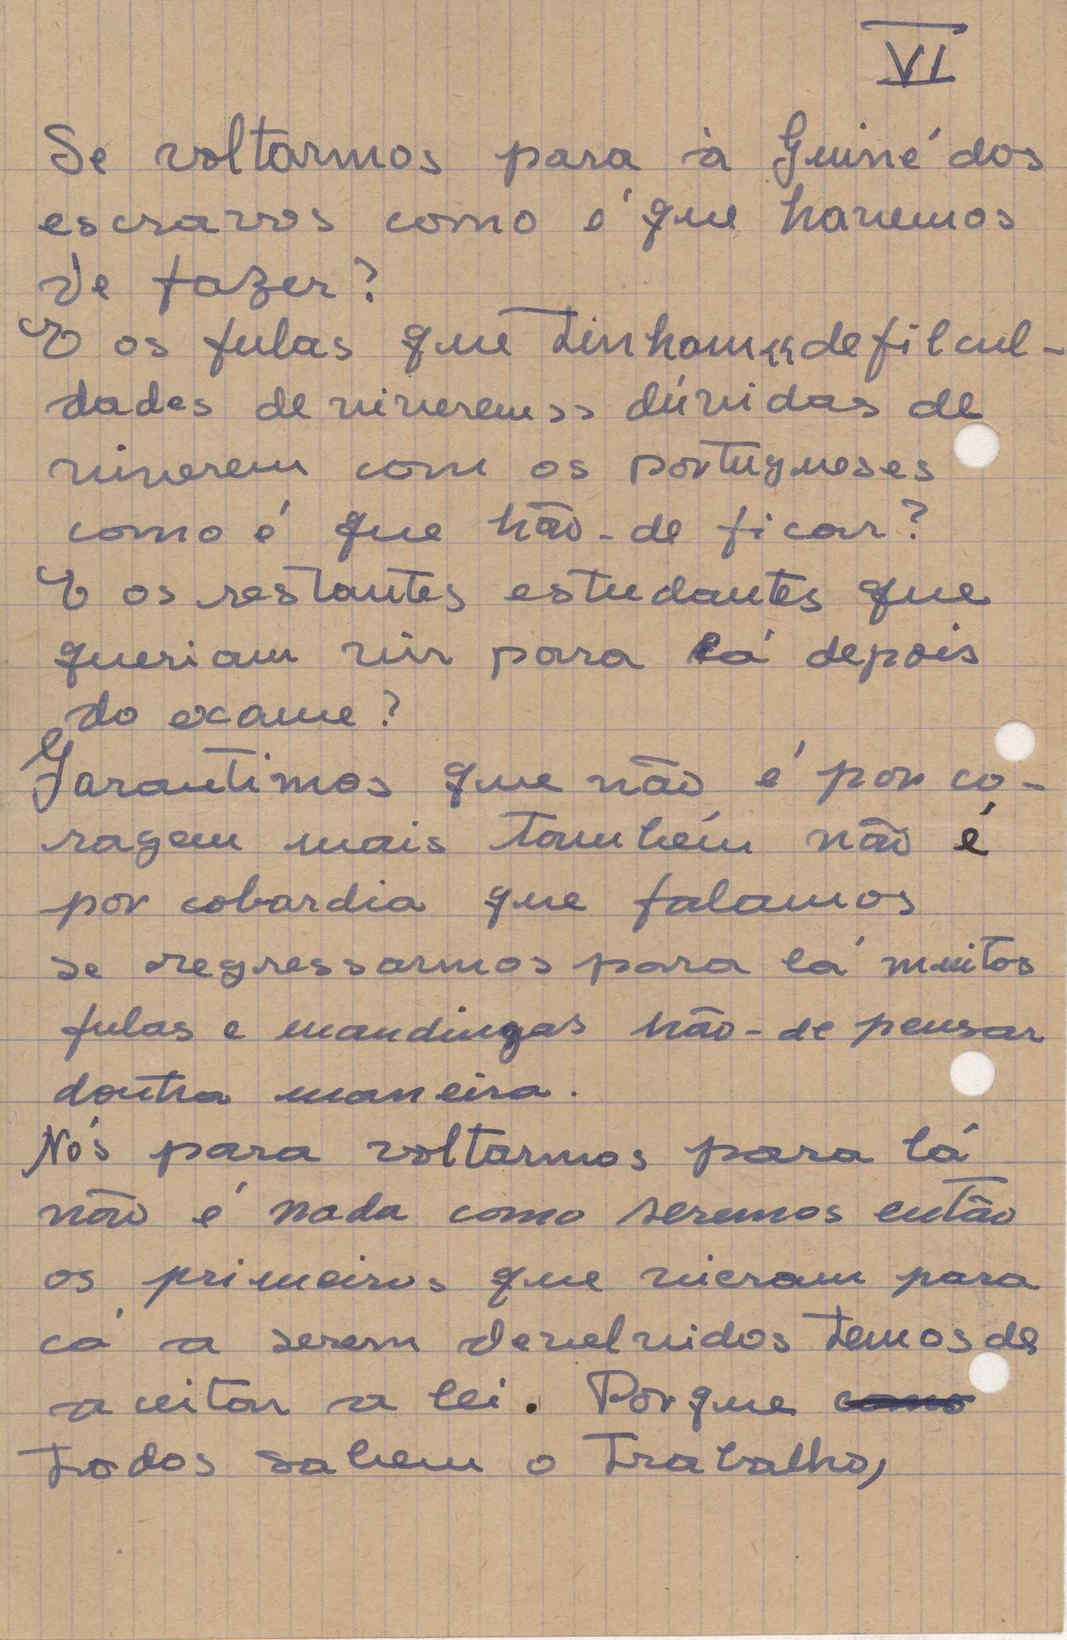 VI
Se voltarmos para à Guiné dos
escravos como é que havemos
de fazer?
E os fulas que tinham "defilcul-
dades de viverem" dúvidas de
viverem com os portugueses
como é que hão-de ficar?
E os restantes estudantes que
queriam vir para cá depois
do exame?
Garantimos que não é por co-
ragem mais também não é
por cobardia que falamos
se regressarmos para lá muitos
fulas e mandingas hão-de pensar
doutra maneira.
Nós para voltarmos para lá
não é nada como seremos então
os primeiros que vieram para
cá a serem develvidos temos de
aceitar a lei. Porque como
todos sabem o trabalho,